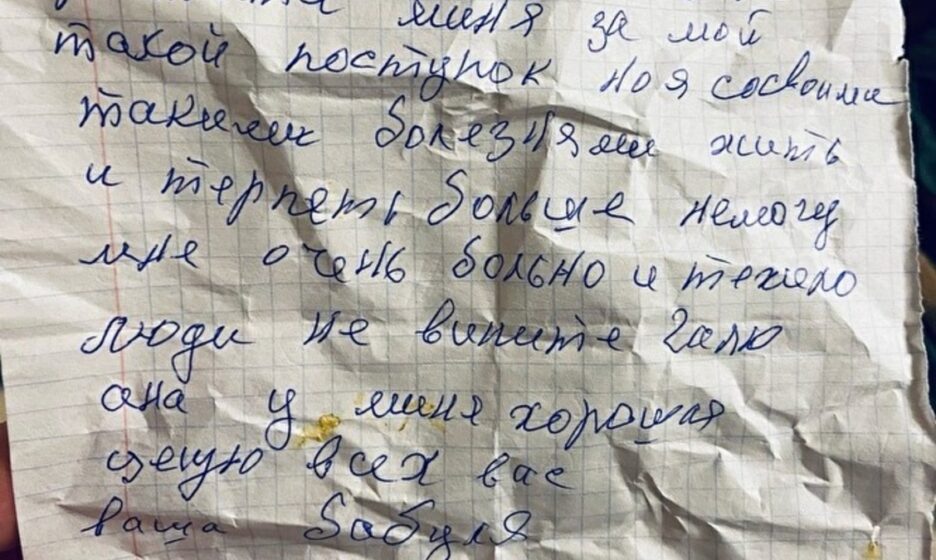 миня за мой
такой поступок но я сосвоими
такими болезнями жить
и терпеть больше немогу
мне очень больно и тежело
люди не вините Галю
она у миня хорошая
целую всех вас
ваша бабуля